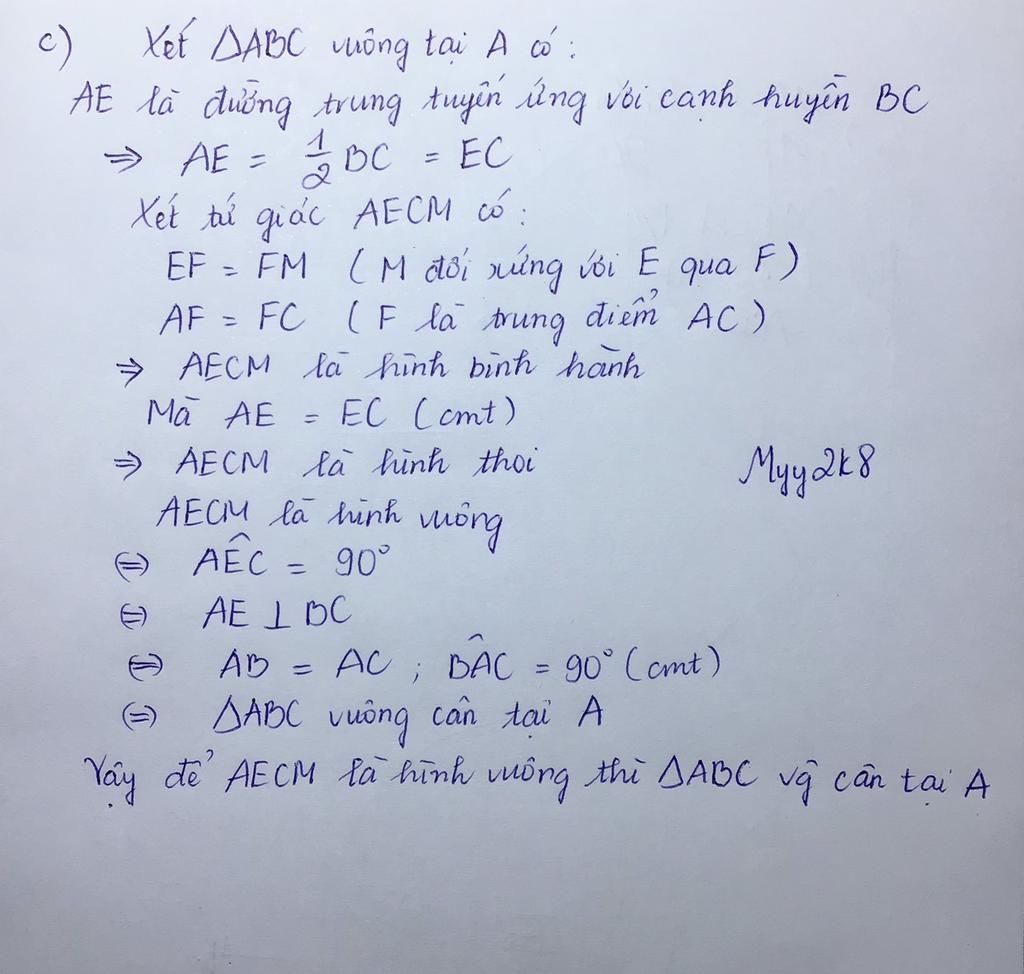 c) Xét ΔABC vuông tại A có:
AE là đường trung tuyến ứng với cạnh huyền BC
⇒ AE = 1/2 BC = EC
Xét tứ giác AECM có:
EF = FM (M đối xứng với E qua F)
AF = FC (F là trung điểm AC)
⇒ AECM là hình bình hành
Mà AE = EC (cmt)
⇒ AECM là hình thoi
Myy2k8
AECM là hình vuông
⇔ AÊC = 90°
⇔ AE ⊥ BC
⇔ AB = AC ; BÂC = 90° (cmt)
⇔ ΔABC vuông cân tại A
Vậy để AECM là hình vuông thì ΔABC vg cân tại A